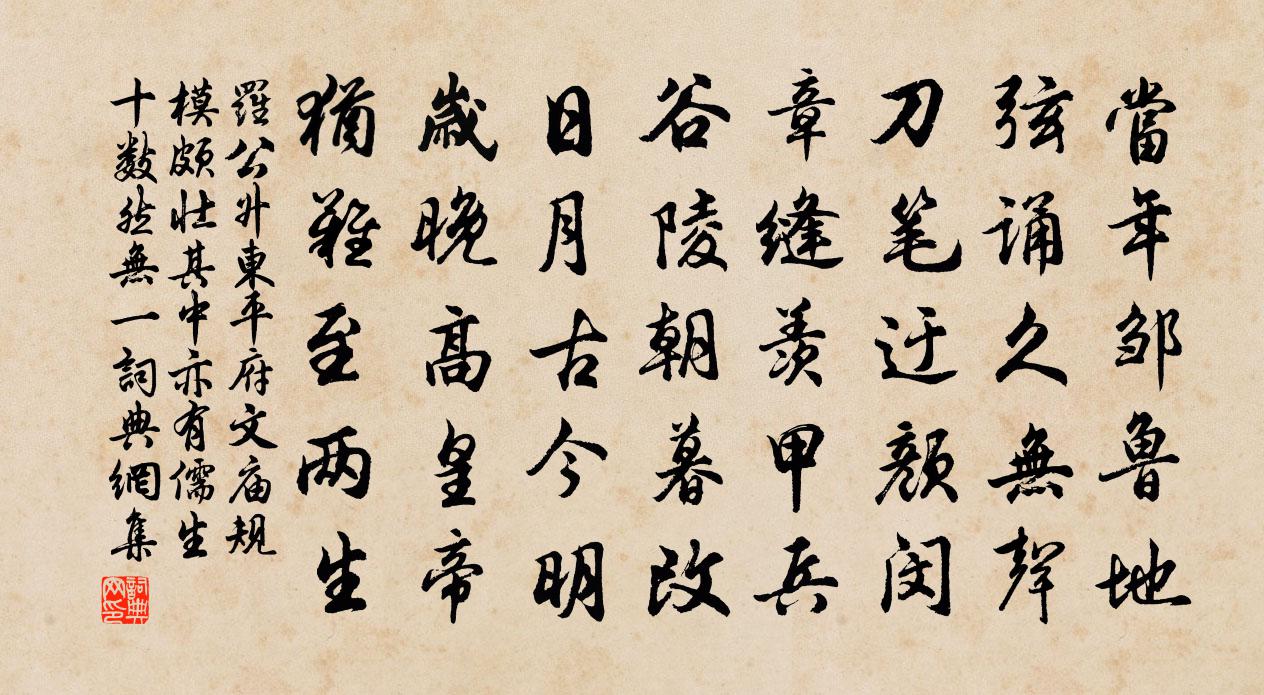 當年邹鲁地
弦诵久無聲
刀笔迂颜闵
章縫羡甲兵
谷陵朝暮改
日月古今明
歲晚高皇帝
猶難至两生
羅公升東平府文庙規
模頗壮其中亦有儒生
十數然無一詞典網集
詞典
网印